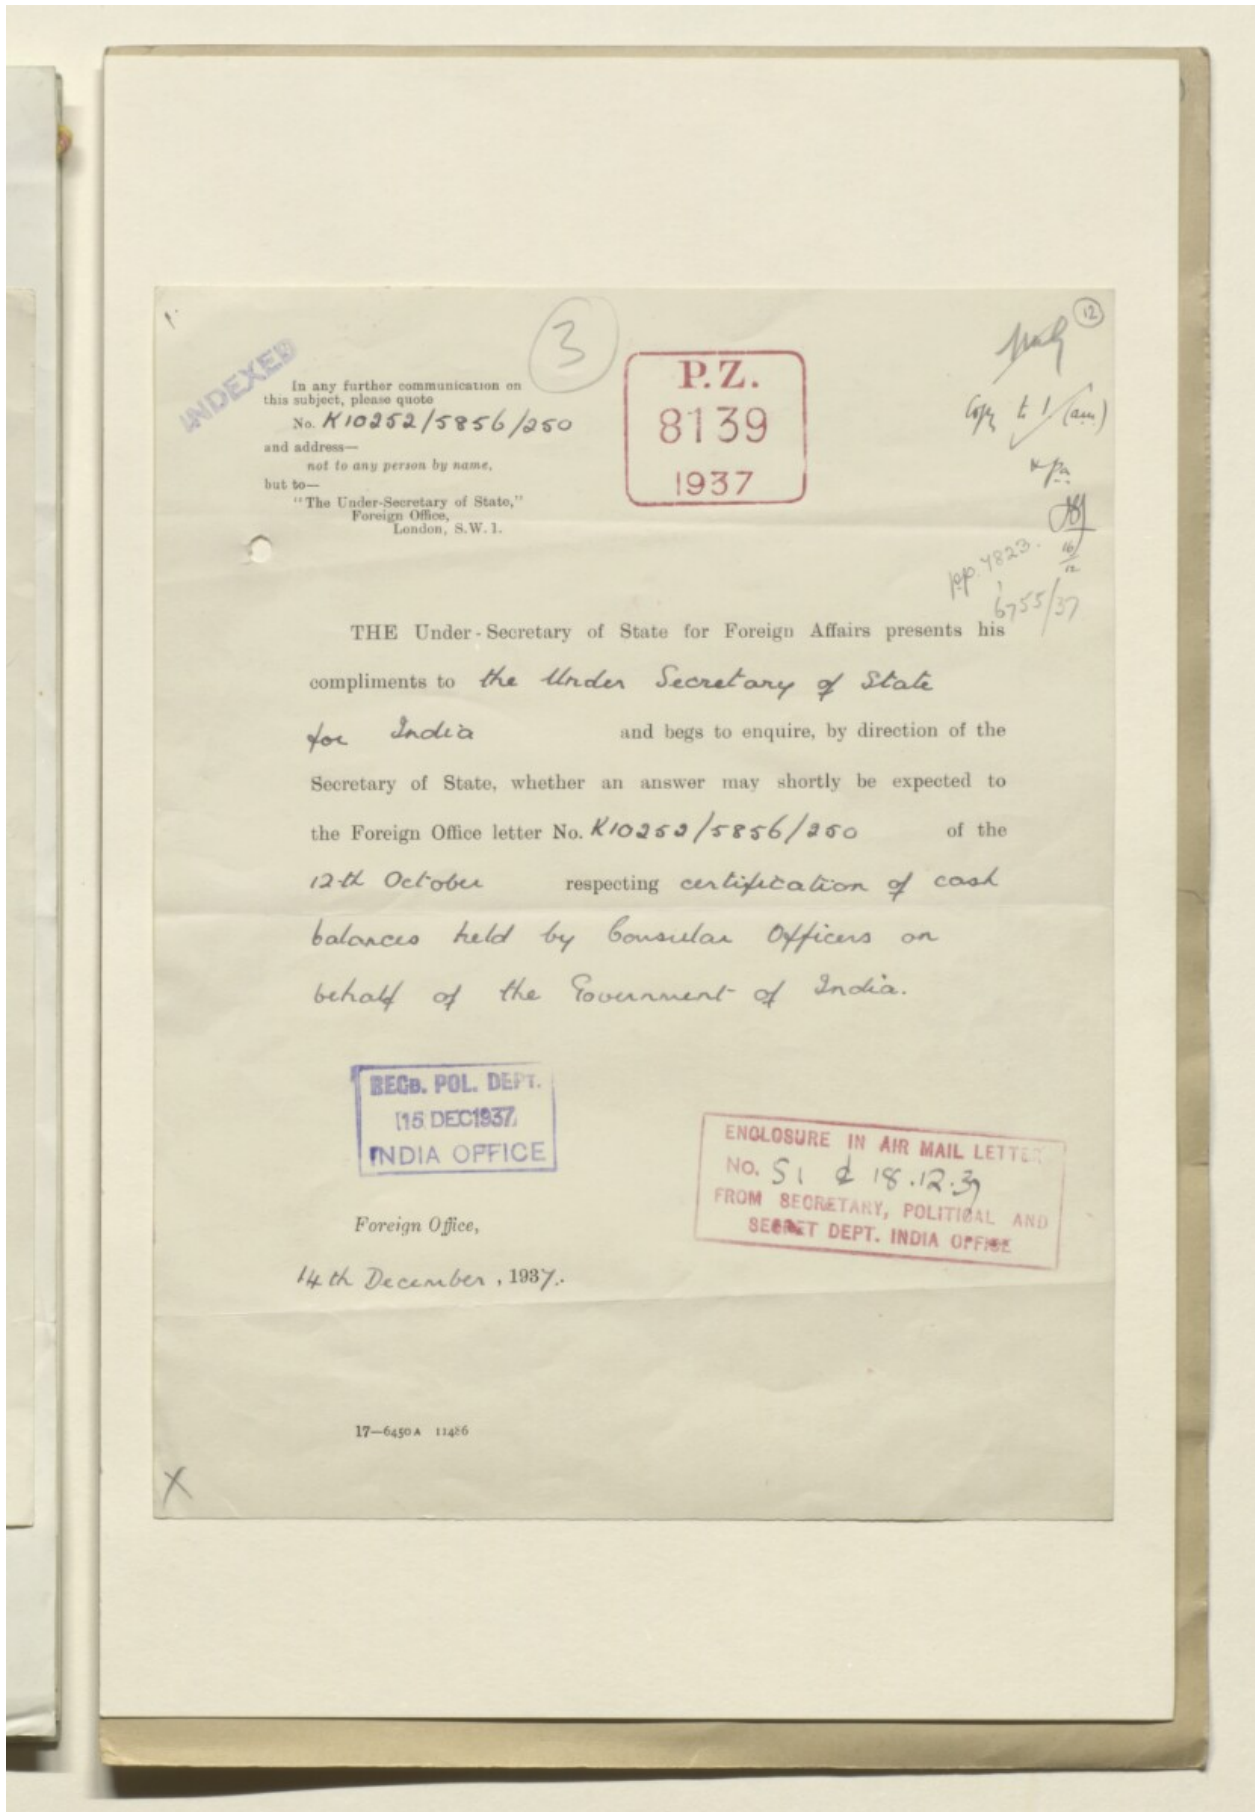 12
3
INDEXED
In any further communication on
this subject, please quote
No. K10252/5856/250
and address—
not to any person by name,
but to—
"The Under-Secretary of State,"
Foreign Office,
London, S.W. 1.
P.Z.
8139
1937
Copy to
16/12
pp. 7823.
6755/37
THE Under-Secretary of State for Foreign Affairs presents his
compliments to the Under Secretary of State
for India and begs to enquire, by direction of the
Secretary of State, whether an answer may shortly be expected to
the Foreign Office letter No. K10252/5856/250 of the
12th October respecting certification of cash
balances held by Consular Officers on
behalf of the Government of India.
RECD. POL. DEPT.
15 DEC 1937
INDIA OFFICE
ENCLOSURE IN AIR MAIL LETTER
No. 51 d 18.12.37
FROM SECRETARY, POLITICAL AND
SECRET DEPT. INDIA OFFICE
Foreign Office,
14th December, 1937.
17—6450A 11486
X